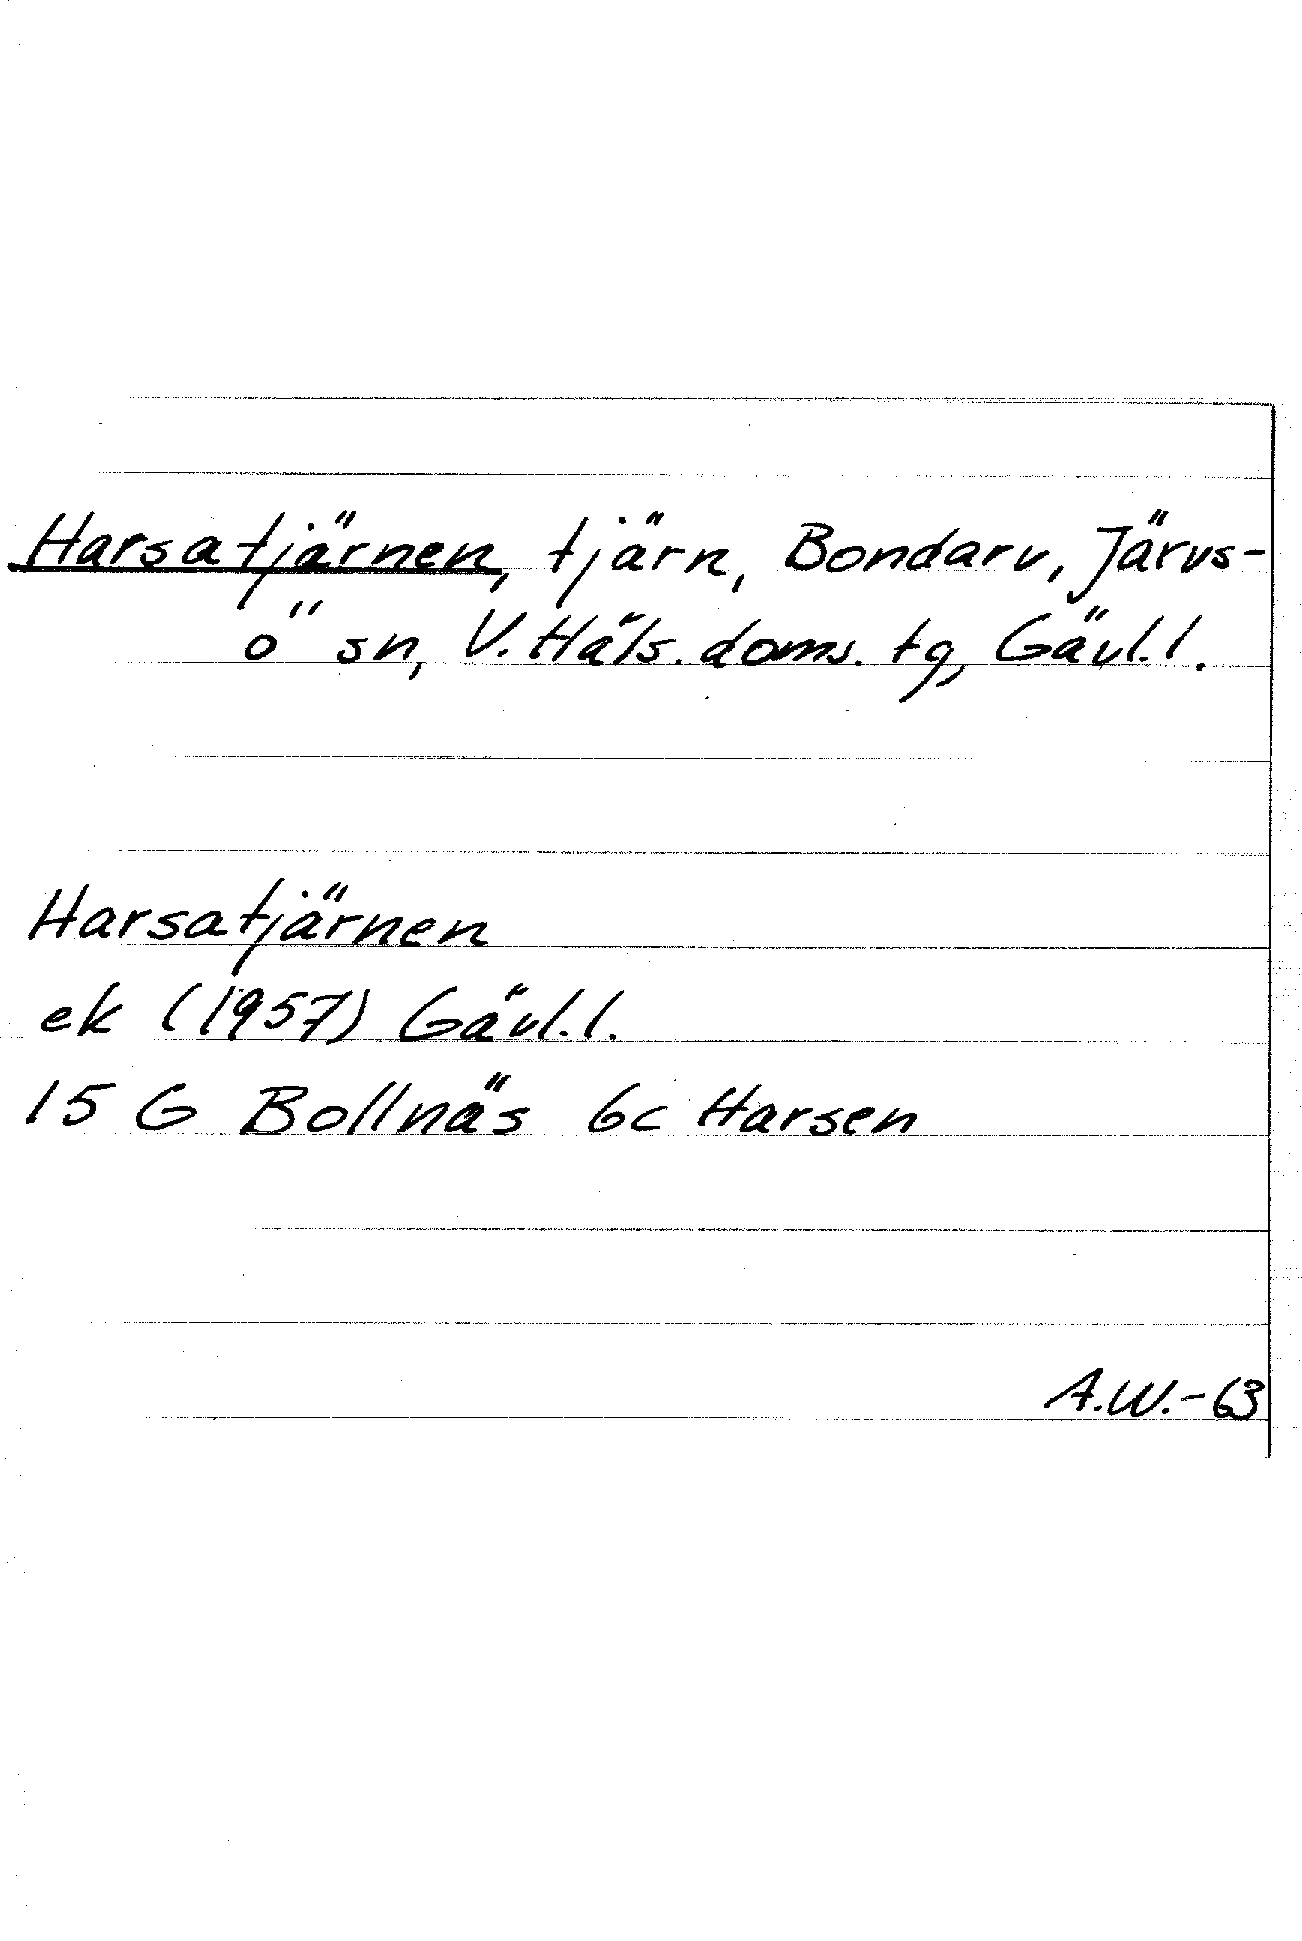 Harsatjärnen, tjärn, Bondarv, Järvs-
ö sn, V. Häls. doms. tg, Gävl. l.
Harsatjärnen
ek (1957) Gävl. l.
15 G Bollnäs 6c Harsen
A.W.-63